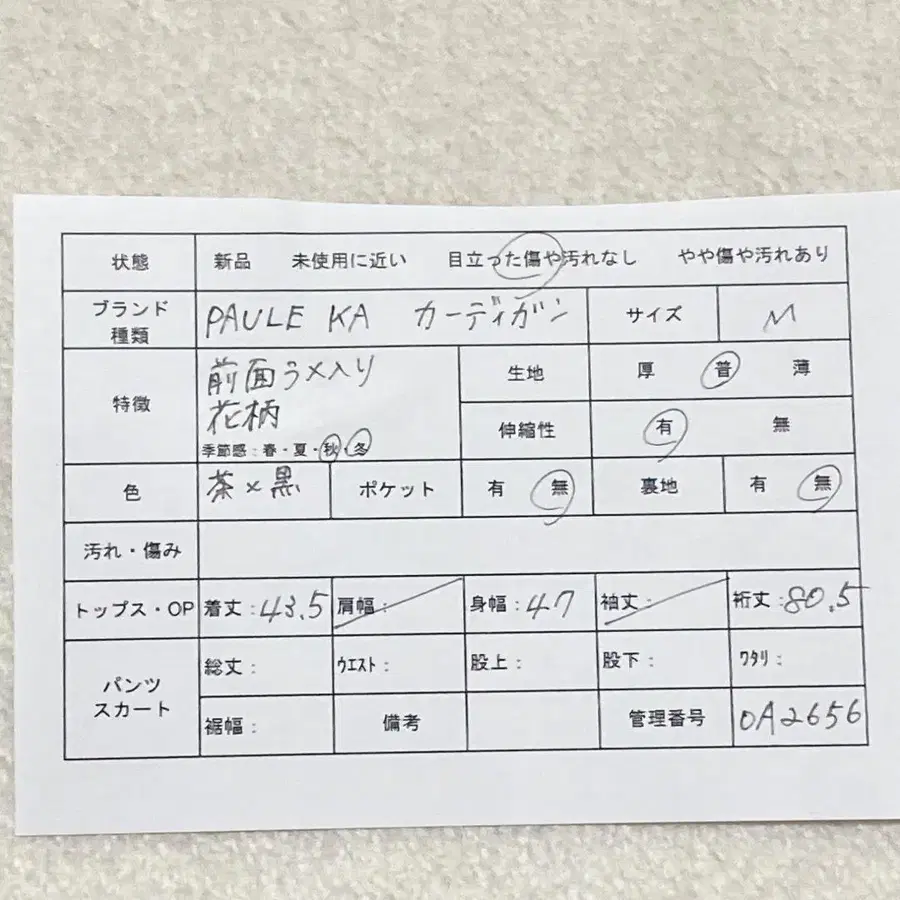 状態 新品 未使用に近い 目立った傷や汚れなし やや傷や汚れあり
ブランド 種類 PAULE KA カーディガン サイズ M
特徴 前面ラメ入り
花柄
季節感:春・夏・秋・冬
生地 厚 普 薄
伸縮性 有 無
色 茶×黒 ポケット 有 無 裏地 有 無
汚れ・傷み
トップス・OP 着丈:43.5 肩幅: 身幅:47 袖丈: 裄丈:80.5
パンツ スカート 総丈: ウエスト: 股上: 股下: ワタリ:
裾幅: 備考 管理番号 OA2656